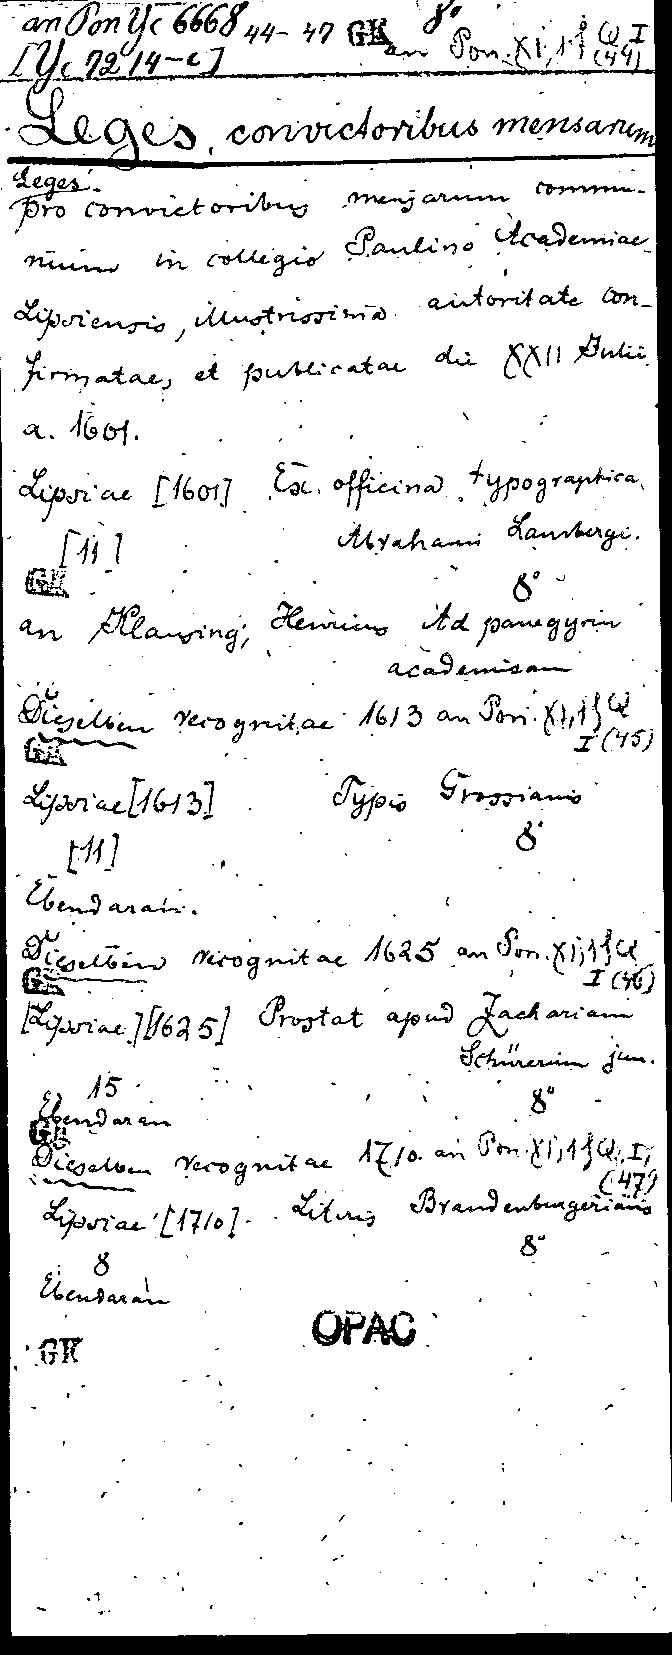 an Pon Yc 6668 44-47 GK 8°
an Pon. XI,1 f Q I (44)
[Yc 7214-c]
Leges, convictoribus mensarum
Leges
pro convictoribus mensarum commu-
nium in collegio Paulino Academiae
Lipsiensis, illustrissima autoritate con-
firmatae, et publicatae die XXII Julii
a. 1601.
Lipsiae [1601] Ex officina typographica
Abrahami Lambergi.
[11] 8°
GK
an Klausing, Henricus Ad panegyrin
academicam
Dieselben recognitae 1613 an Pon. XI,1 f Q
I (45)
GK
Lipsiae [1613] Typis Grossianis
[11] 8°
Ebendaran.
Dieselben recognitae 1625 an Pon. XI,1 f Q
I (46)
GK
[Lipsiae] [1625] Prostat apud Zachariam
Schürerum jun.
15 8°
Ebendaran
GK
Dieselben recognitae 1710. an Pon. XI,1 f Q, I,
(47)
Lipsiae [1710]. Literis Brandenburgerianis
8 8°
Ebendaran
OPAC
GK